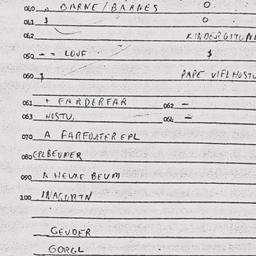 040 A BARNE/BARNES O.
041 $ O
042 KINDERGITUNE
050 - - LOVE $
060 $ PAPE VIFLHOSTU
061 + FARDERFAR 062 -
063 HOSTU, 064 -
070 A FARFOATER EPL
080 EPLBEUMER
090 A NEUXE BEUM
100 INAGORTN
GEUDER
GORGL